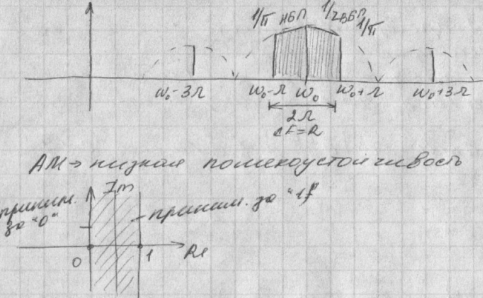 1/π НБП 1/2 ВБП 1/π
ω₀-3Ω ω₀-Ω ω₀ ω₀+Ω ω₀+3Ω
2Ω
ΔF=R
АМ → низкая помехоустойчивость
Im
приним. за "0"
приним. за "1"
0 1 Re